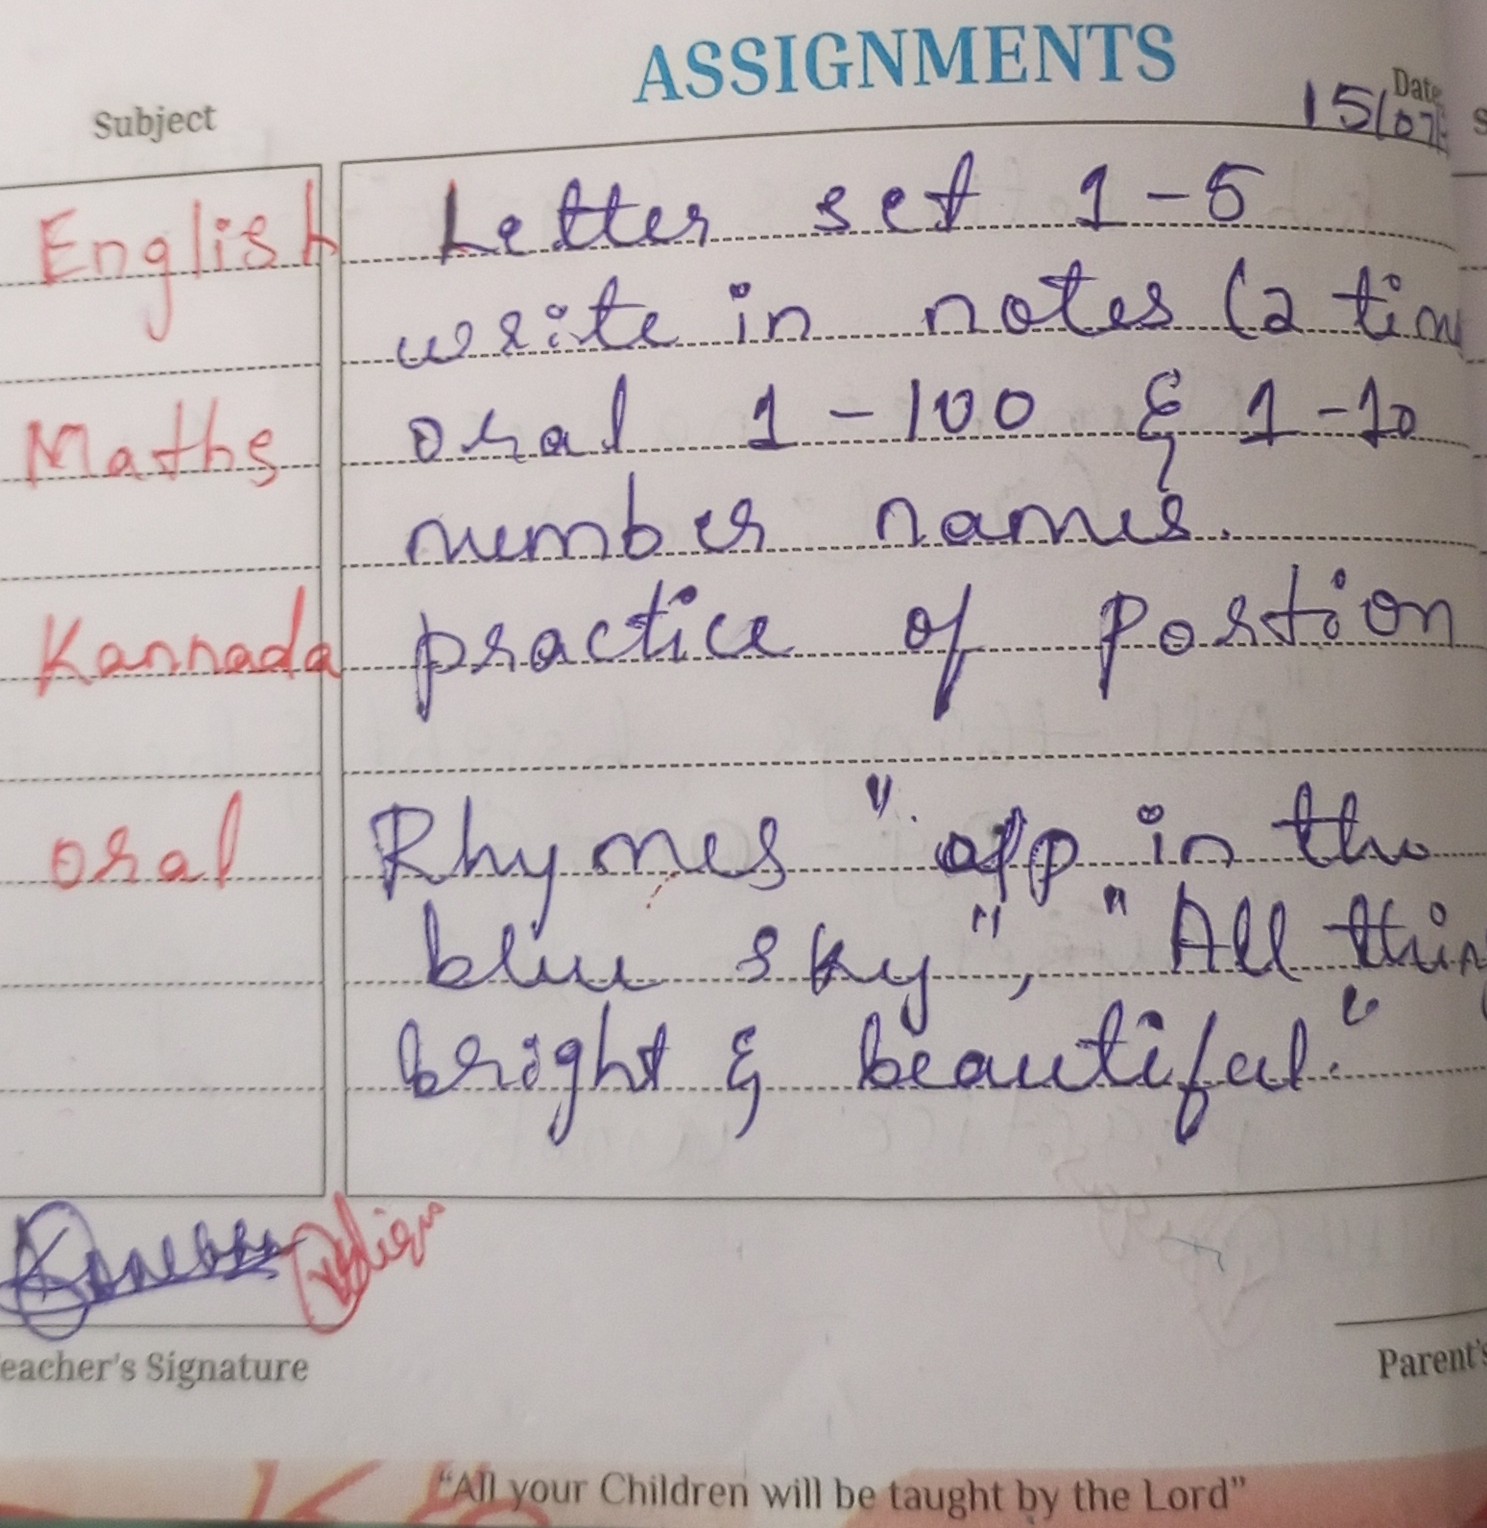 ASSIGNMENTS
Subject
Date
15/07
English Letter set 1-5
write in notes (2 tim
Maths oral 1-100 & 1-10
number names.
Kannada practice of Portion
oral Rhymes "up in the
blue sky", "All thin
bright & beautiful."
eacher's Signature
Parent's
"All your Children will be taught by the Lord"